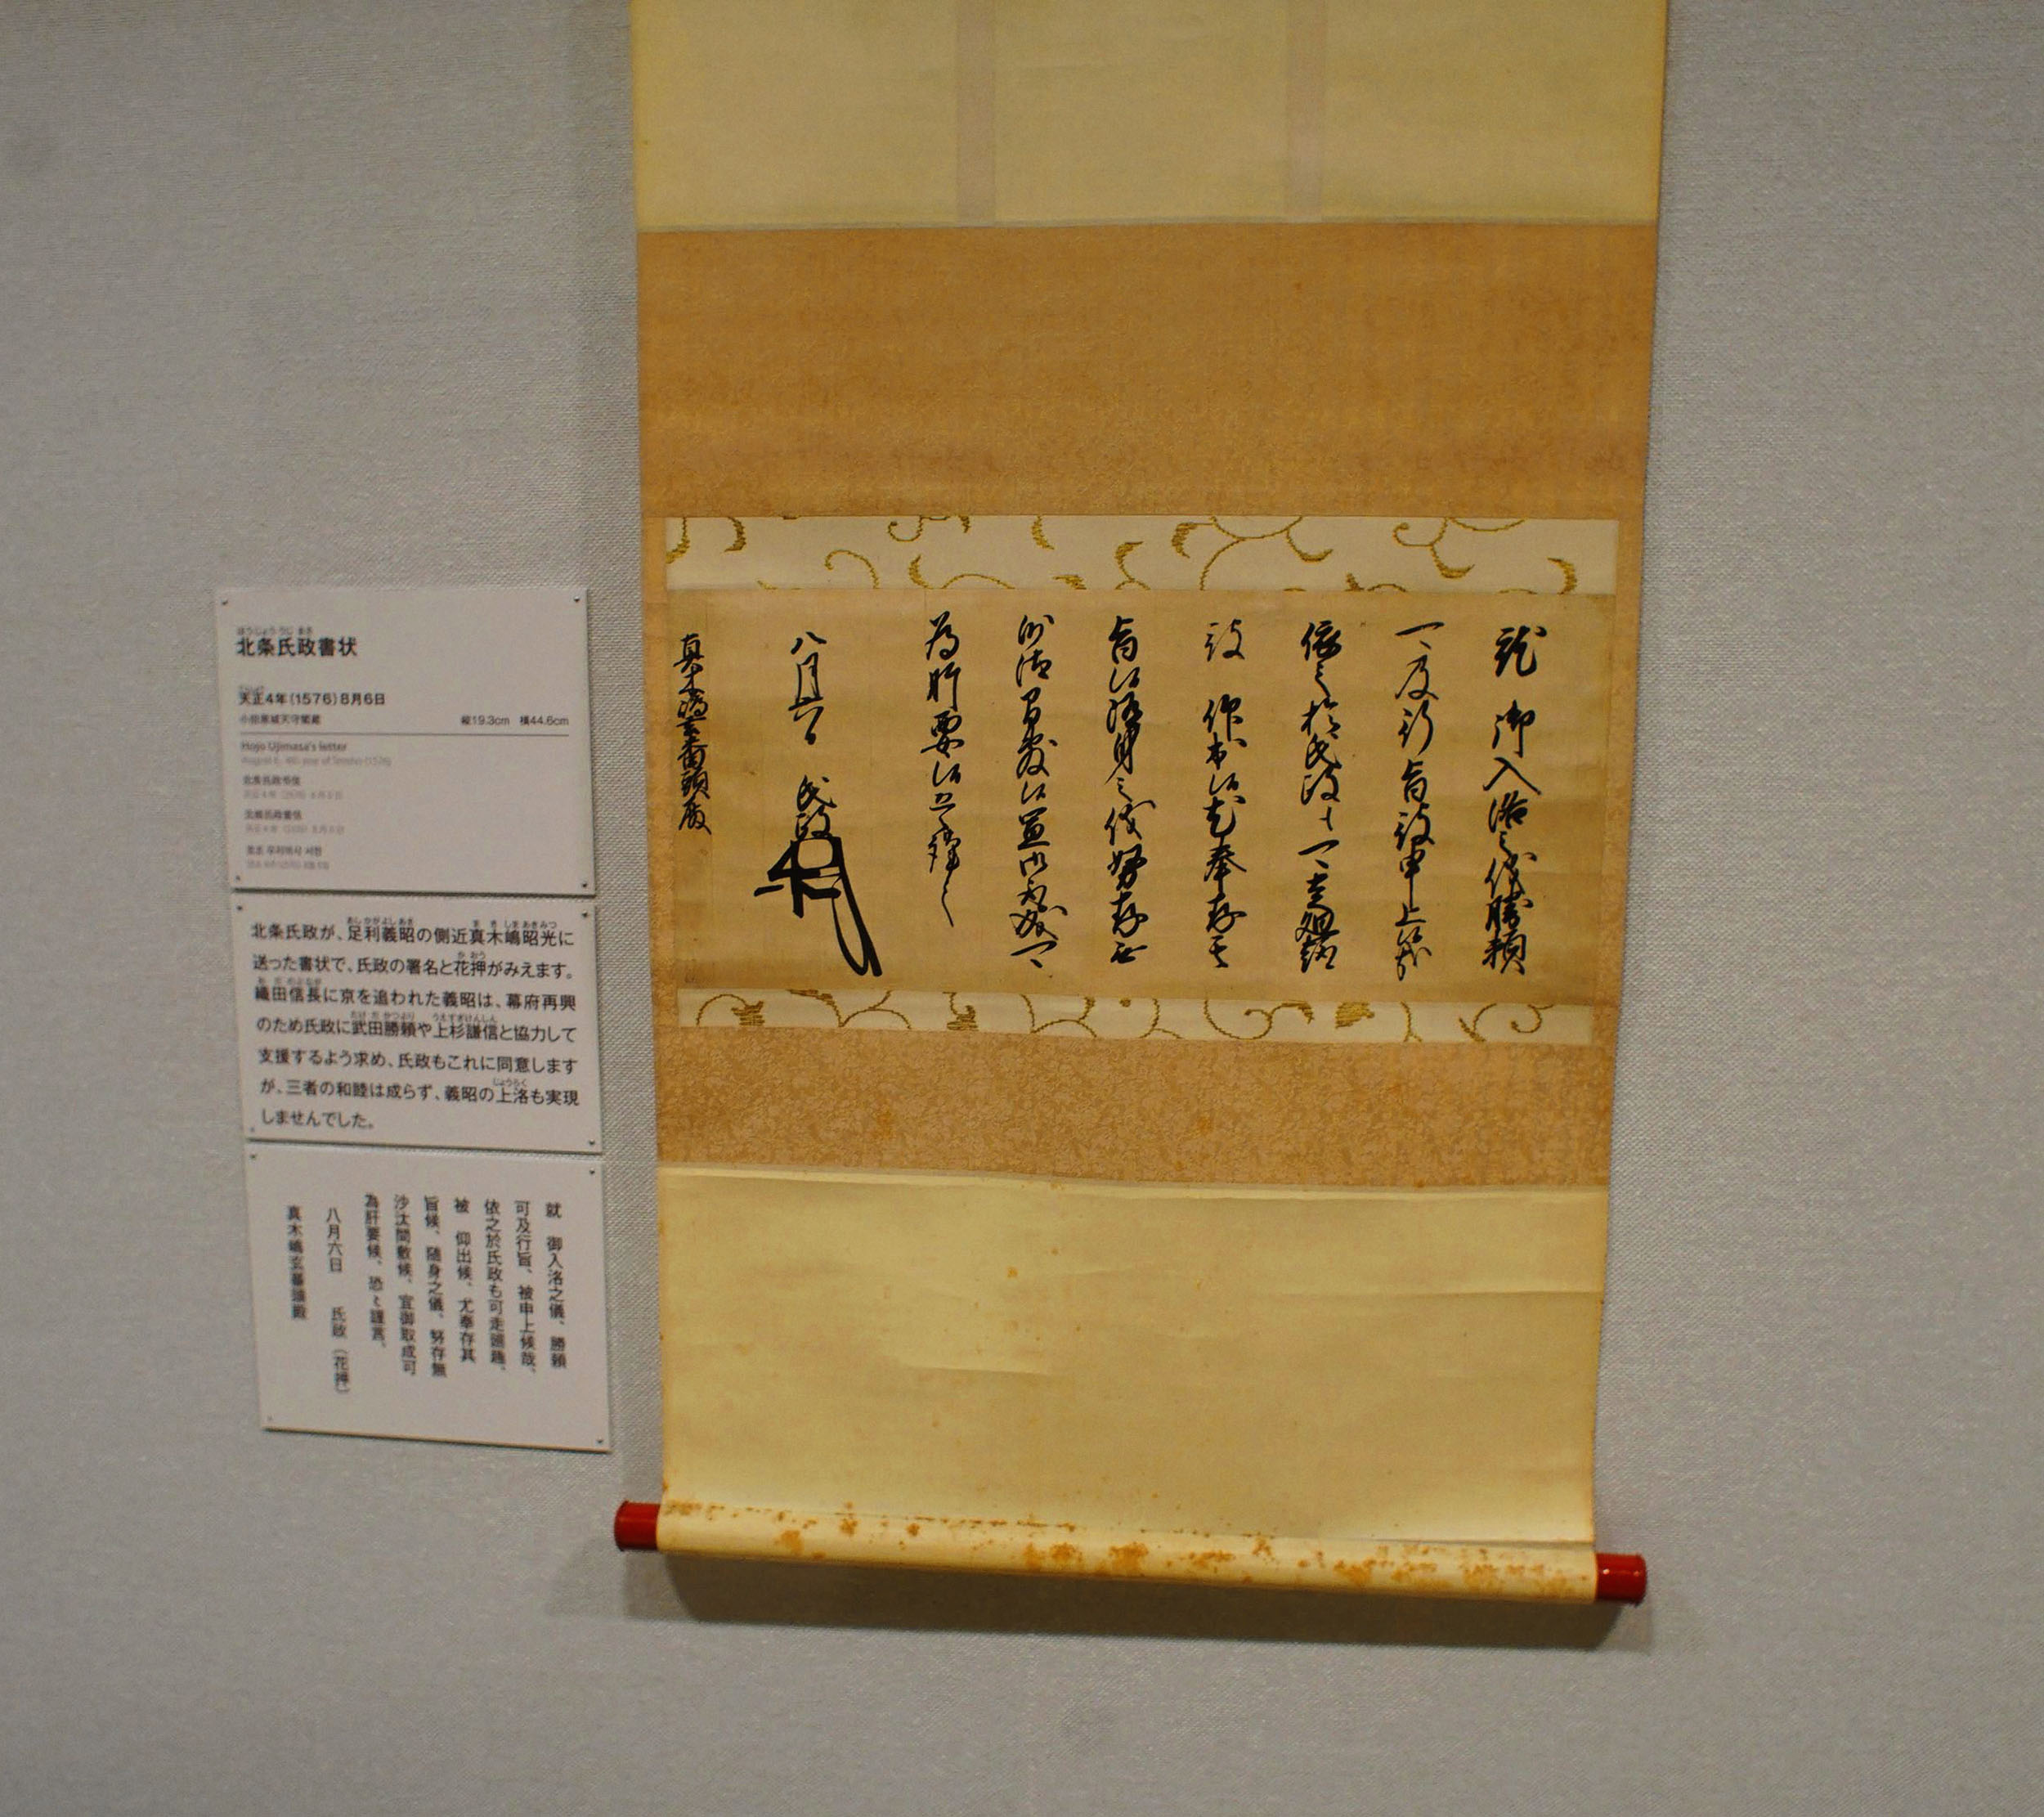 ほうじょううじまさ
北条氏政書状
天正4年(1576)8月6日
小田原城天守閣蔵 縦19.3cm 横44.6cm
Hojo Ujimasa's letter
August 6, 4th year of Tensho (1576)
北条氏政が、足利義昭の側近真木嶋昭光に
送った書状で、氏政の署名と花押がみえます。
織田信長に京を追われた義昭は、幕府再興
のため氏政に武田勝頼や上杉謙信と協力して
支援するよう求め、氏政もこれに同意します
が、三者の和睦は成らず、義昭の上洛も実現
しませんでした。
就 御入洛之儀、勝頼
可及行旨、被申上候哉、
依之於氏政も可走廻趣、
被 仰出候、尤奉存其
旨候、随身之儀、努存無
沙汰間敷候、宜御取成可
為肝要候、恐々謹言、
八月六日 氏政(花押)
真木嶋玄蕃頭殿
就 御入洛之儀勝頼
可及行旨被申上候哉
依之於氏政も可走廻趣
被 仰出候尤奉存其
旨候随身之儀努存無
沙汰間敷候宜御取成可
為肝要候恐々謹言
八月六日 氏政
真木嶋玄蕃頭殿